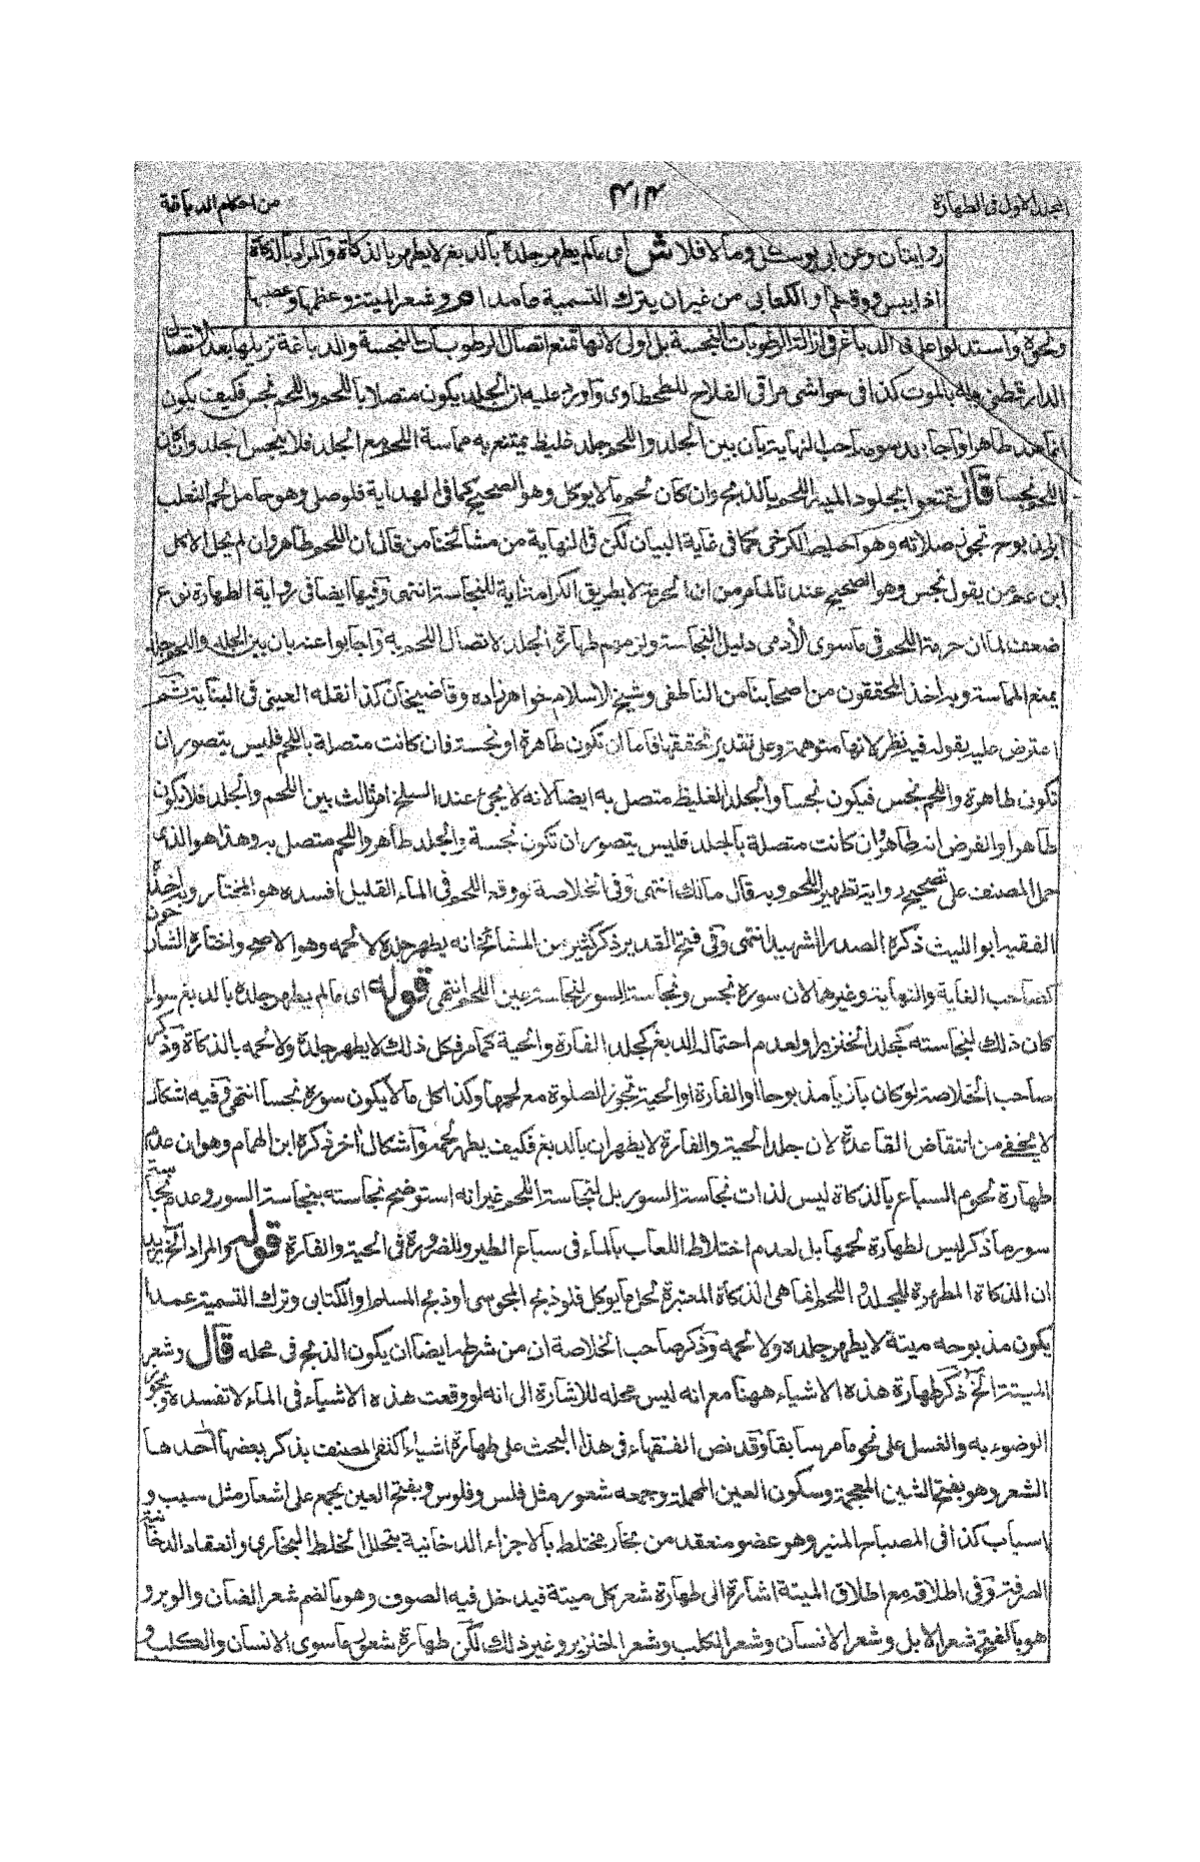 المجلد الاول فى الطهارة
۴۱۴
من احكام الدباغة
روايتان وعن ابى يوسف وما لا فلا ش اى ما لم يطهر جلدة بالدبغ لا يطهر بالذكاة والمراد بالذكاة
ان يذبح المسلم او الكتابى من غير ان يترك التسمية عامدا هر وشعر الميتة وعظمها وعصبها
ونحوه واستدلوا على الدباغ فى ازالة الرطوبات النجسة بل اولى لانها تمنع اتصال الرطوبات النجسة والدباغة تزيلها بعد الاتصال
بالموت كذا فى حواشى مراقى الفلاح للطحطاوى واورد عليه ان الجلد يكون متصلا باللحم واللحم نجس فكيف يكون
طاهرا واجاب صاحب النهاية بان بين الجلد واللحم جلد غليظ يمتنع به مماسة اللحم مع الجلد فلا ينجس الجلد وان كان
اللحم نجسا قال اللحم بالذبح وان كان لحم ما لا يوكل وهو الصحيح كما فى الهداية فلو صلى وهو حامل لحم الثعلب
تجوز صلاته وهو الكرخى كما فى غاية البيان لكن فى النهاية من مشائخنا من قال ان اللحم طاهر وان لم يحل الاكل
من يقول نجس وهو الصحيح عندنا لما مر من ان الحرمة لا بطريق الكرامة اية للنجاسة انتهى وفيها ايضا فى رواية الطهارة نوع
ضعف لما ان حرمة اللحم فى ما سوى الأدمى دليل النجاسة ولزمهم طهارة الجلد لاتصال اللحم به واجابوا عنه بان بين الجلد واللحم جلد
يمنع المماسة وبه اخذ المحققون من اصحابنا من الناطفى وشيخ الاسلام خواهرزاده وقاضيخان كذا نقله العينى فى البناية ثم
اعترض عليه بقوله فيه نظر لانها متوهمة وعلى تقدير تحققها فاما ان تكون طاهرة او نجسة فان كانت متصلة باللحم فليس يتصور ان
تكون طاهرة واللحم نجس فيكون نجسا والجلد الغليظ متصل به ايضا لانه لا يجئ عند السلخ امر ثالث بين اللحم والجلد فلا يكون
طاهرا والفرض انه طاهر وان كانت متصلة بالجلد فليس يتصور ان تكون نجسة والجلد طاهر واللحم متصل به وهذا هو الذى
حمل المصنف على تصحيح رواية تطهير اللحم وبه قال مالك انتهى وفى الخلاصة لو وقع اللحم فى الماء القليل افسده هو المختار وبه اخذ
الفقيه ابو الليث ذكره الصدر الشهيد انتهى وفى فتح القدير ذكر كثير من المشائخ انه يطهر جلدة لا لحمه وهو الاصح واختاره الشارحون
كصاحب الغاية والنهاية وغيرهما لان سوره نجس ونجاسة السور لنجاسة عين اللحم انتهى قوله اى ما لم يطهر جلدة بالدبغ سواء
كان ذلك لنجاسته كجلد الخنزير او لعدم احتماله الدبغ كجلد الفارة والحية كما مر فكل ذلك لا يطهر جلدة ولا لحمه بالذكاة وذكر
صاحب الخلاصة لو كان بازيا مذبوحا او الفارة او الحية تجوز الصلوة مع لحمها وكذا كل ما لا يكون سوره نجسا انتهى وفيه اشكال
لا يخفى من انتقاض القاعدة لان جلد الحية والفارة لا يطهران بالدبغ فكيف يطهر لحمه واشكال اخر ذكره ابن الهمام وهو ان عدم
طهارة لحوم السباع بالذكاة ليس لذات نجاسة السور بل لنجاسة اللحم غير انه استوضح نجاسته بنجاسة السور وعدم نجاسة
سور ما ذكر ليس لطهارة لحمها بل لعدم اختلاط اللعاب بالماء فى سباع الطير وللضرورة فى الحية والفارة قوله والمراد الخ يريد
ان الذكاة المطهرة للجلد واللحم انما هى الذكاة المعتبرة لحل ما يوكل فلو ذبح المجوسى او ذبح المسلم او الكتابى وترك التسمية عمدا
يكون مذبوحه ميتة لا يطهر جلده ولا لحمه وذكر صاحب الخلاصة ان من شرطه ايضا ان يكون الذبح فى محله قال وشعر
الميتة الخ ذكر طهارة هذه الاشياء ههنا مع انه ليس محله للاشارة الى انه لو وقعت هذه الاشياء فى الماء لا تفسده ويجوز
الوضوء به والغسل على نحو ما مر سابقا وقد نص الفقهاء فى هذا البحث على طهارة اشياء اكتفى المصنف بذكر بعضها احدها
الشعر وهو بفتح الشين المعجمة وسكون العين المهملة وجمعه شعور مثل فلس وفلوس وبفتح العين يجمع على اشعار مثل سبب و
اسباب كذا فى المصباح المنير وهو عضو منعقد من بخار مختلط بالاجزاء الدخانية بتحلل الخلط البخارى وانعقاد الدخانية
الصرفة وفى اطلاقه مع اطلاق الميتة اشارة الى طهارة شعر كل ميتة فيدخل فيه الصوف وهو بالضم شعر الضان والوبر و
هو بالفتح شعر الابل وشعر الانسان وشعر الكلب وشعر الخنزير وغير ذلك لكن طهارة شعر ما سوى الانسان والكلب و